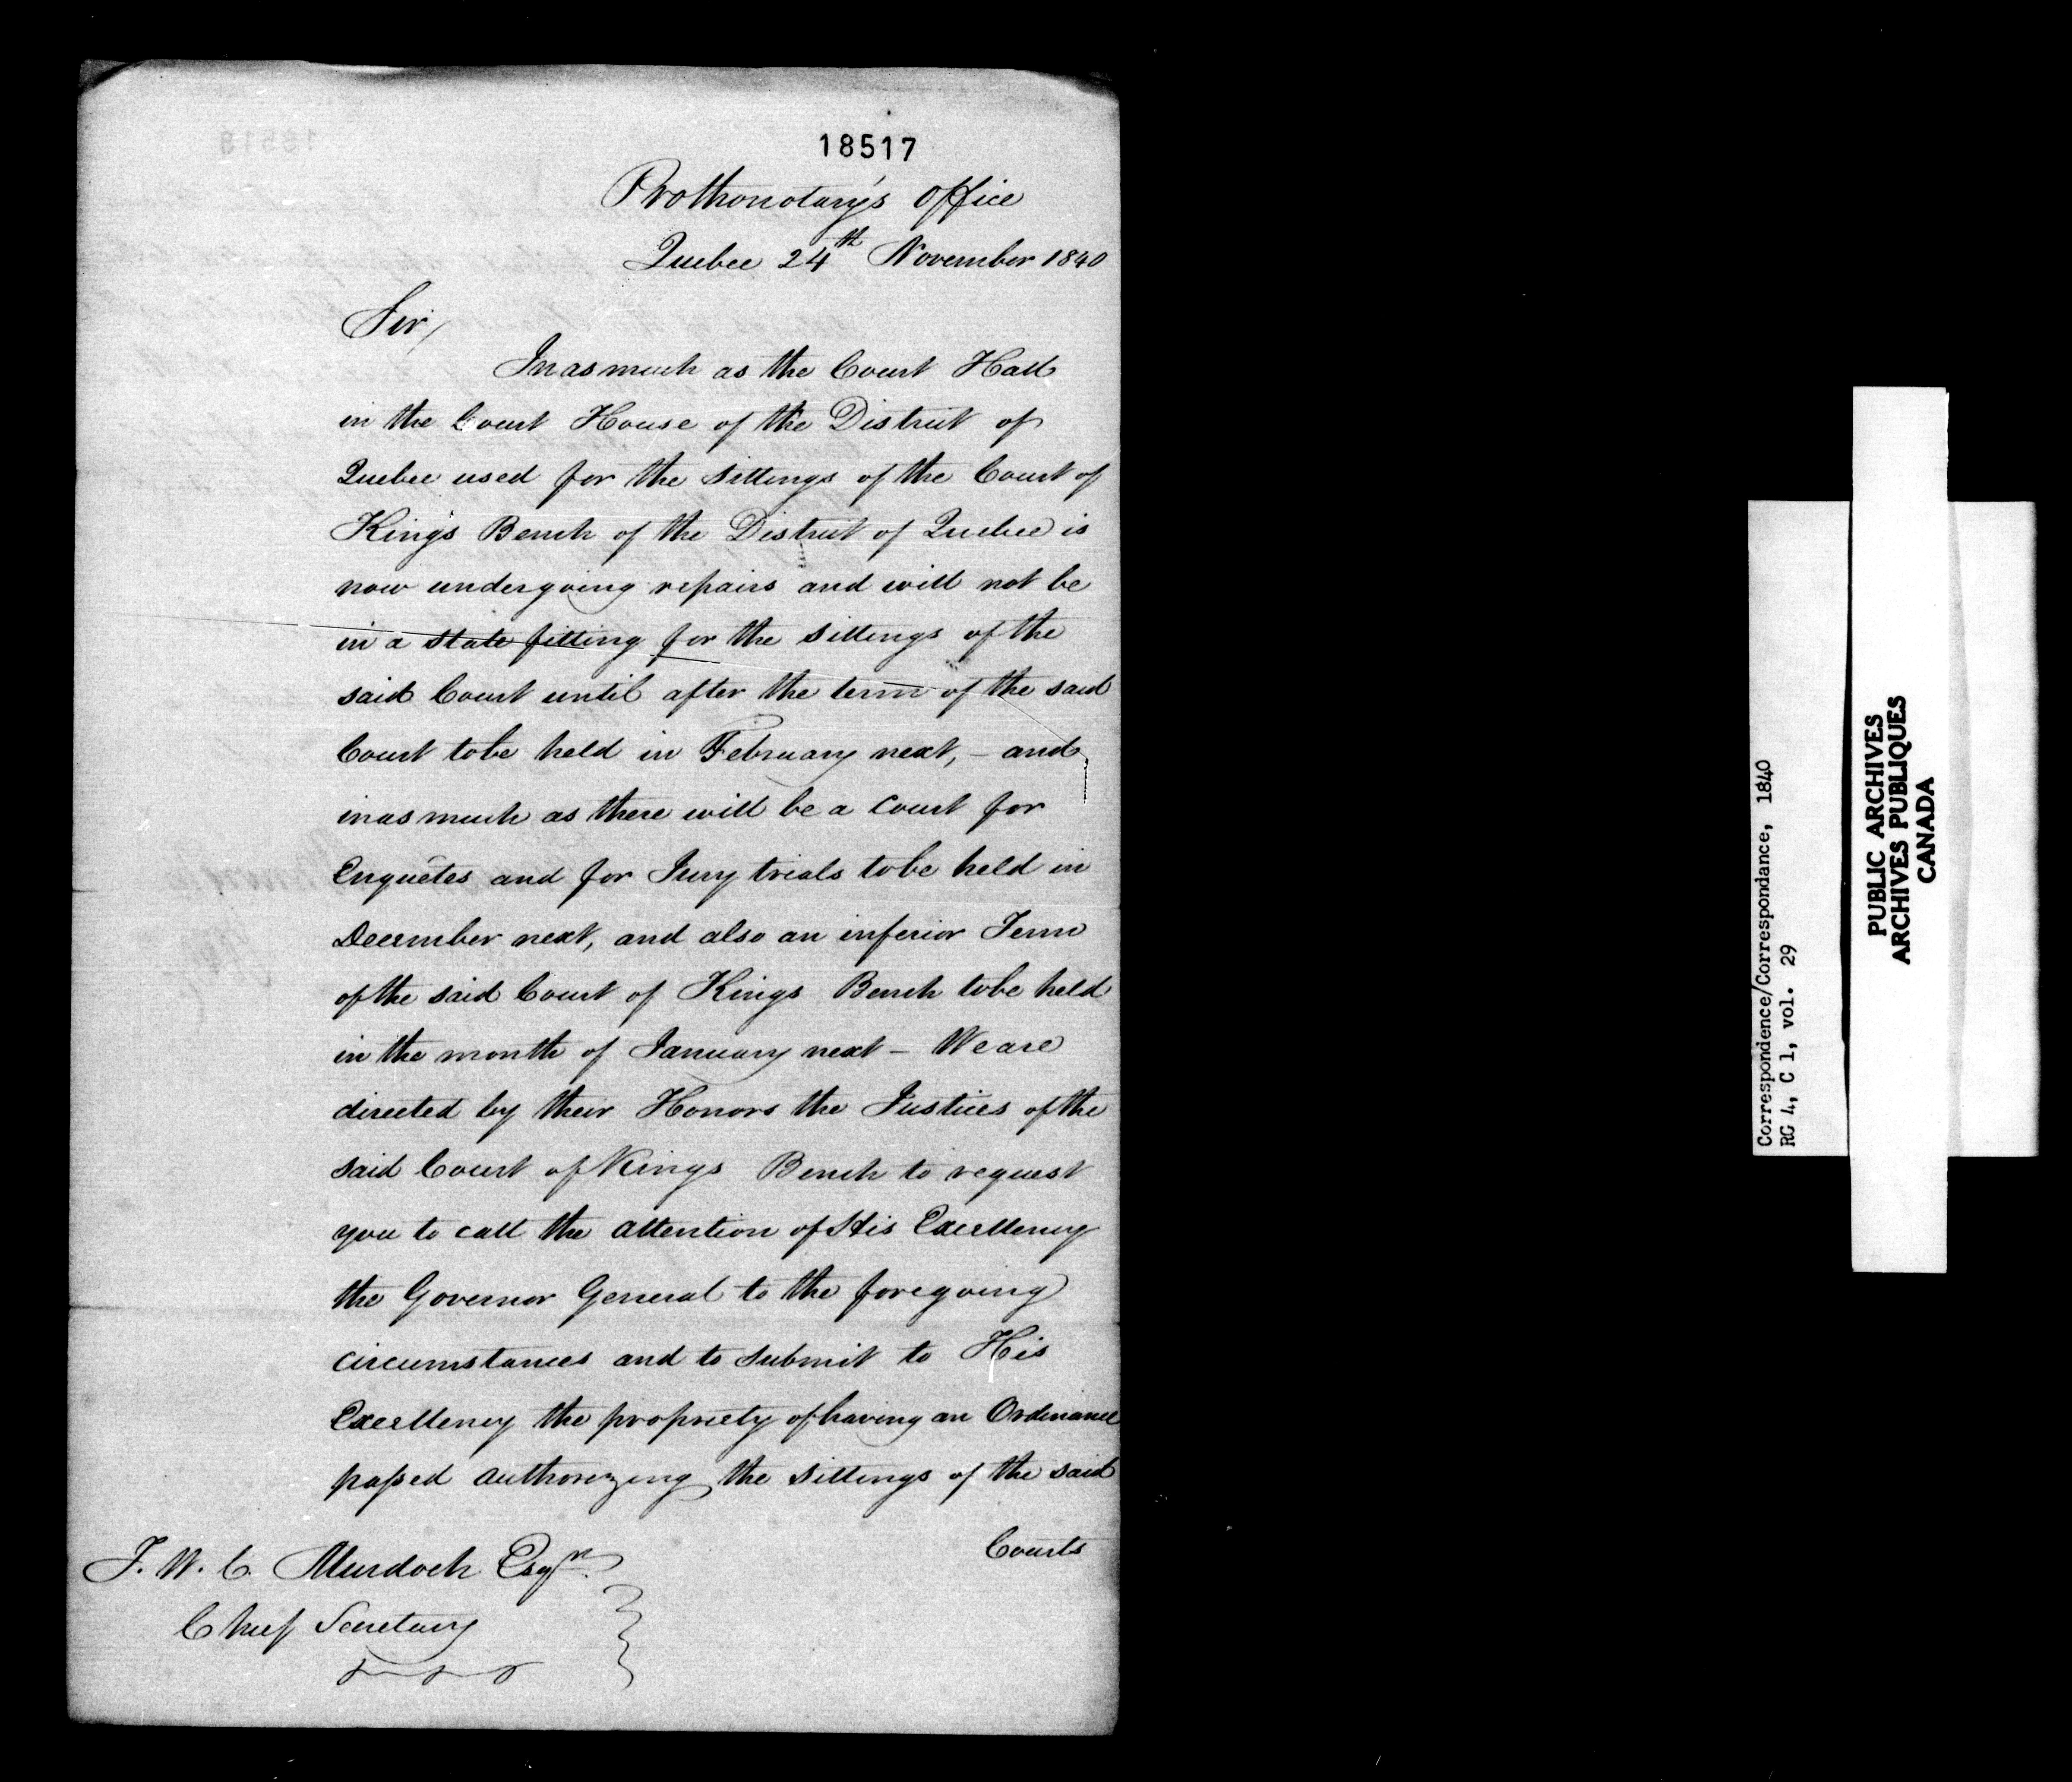 18517
Prothonotary's Office
Quebec 24th November 1840
Sir/
Inasmuch as the Court Hall
in the Court House of the District of
Quebec used for the sittings of the Court of
King's Bench of the District of Quebec is
now undergoing repairs and will not be
in a state fitting for the sittings of the
said Court until after the term of the said
Court to be held in February next, – and
inasmuch as there will be a Court for
Enquêtes and for Jury trials to be held in
December next, and also an inferior Term
of the said Court of Kings Bench to be held
in the month of January next – We are
directed by their Honors the Justices of the
said Court of Kings Bench to request
you to call the attention of His Excellency
the Governor General to the foregoing
circumstances and to submit to His
Excellency the propriety of having an Ordinance
passed authorizing the sittings of the said
Courts
T. W. C. Murdoch Esqre.
Chief Secretary
Correspondence/Correspondance, 1840
RG 4, C 1, vol. 29
PUBLIC ARCHIVES
ARCHIVES PUBLIQUES
CANADA